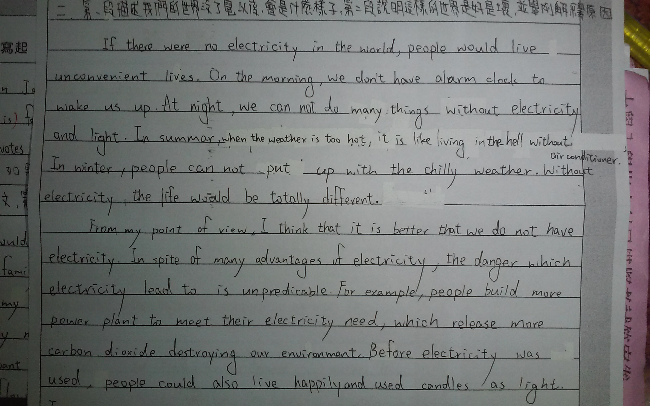 二、第一段描述我們的世界沒了電以後,會是什麼樣子。第二段說明這樣的世界是好是壞,並舉例解釋原因
寫起
If there were no electricity in the world, people would live
unconvenient lives. On the morning, we don't have alarm clock to
wake us up. At night, we can not do many things without electricity
and light. In summar, when the weather is too hot, it is like living in the hell without
air conditioner.
In winter, people can not put up with the chilly weather. Without
electricity, the life would be totally different.
From my point of view, I think that it is better that we do not have
electricity. In spite of many advantages of electricity, the danger which
electricity lead to is unpredicable. For example, people build more
power plant to meet their electricity need, which release more
carbon dioxide destroying our environment. Before electricity was
used, people could also live happily and used candles as light.